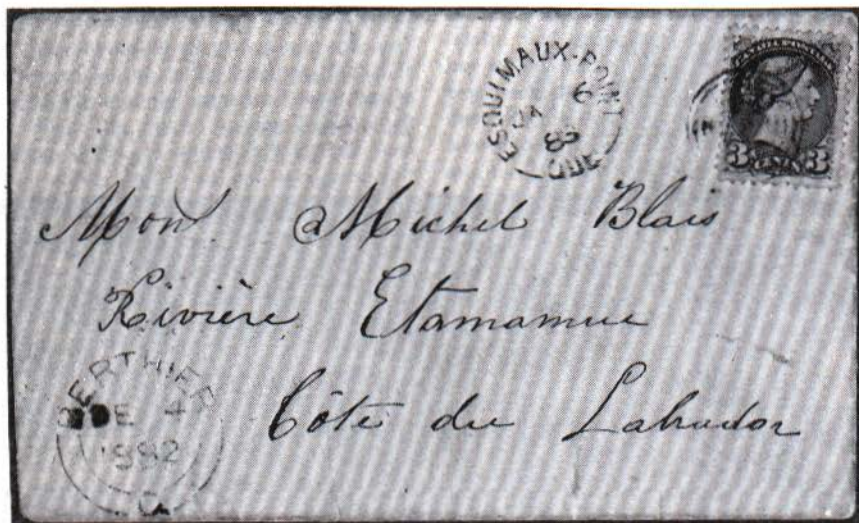 ESQUIMAUX-POINT
6
JA
83
QUE
3 CENTS 3
Mon Michel Blais
Rivière Etamamue
Côte du Labrador
BERTHIER
DE 4
1882
Q